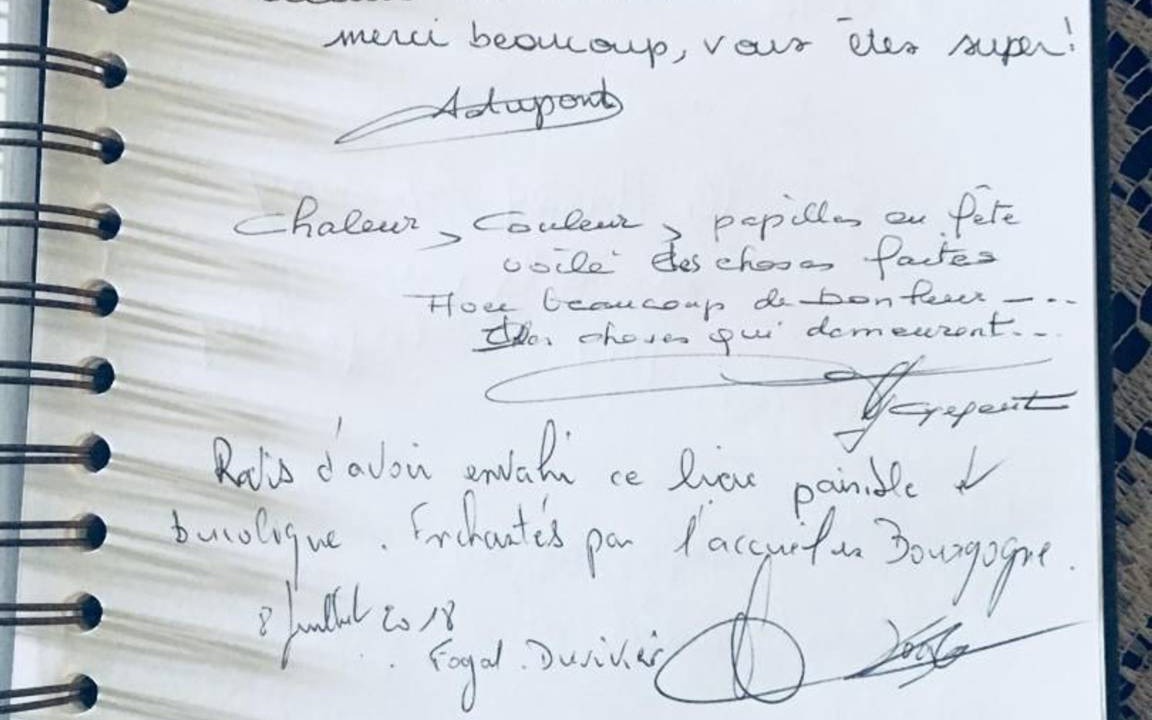 merci beaucoup, vous êtes super!
Adupont
Chaleur, Couleur, papilles en fête
voilà des choses faites
Avec beaucoup de bonheur ---
des choses qui demeurent...
Ravis d'avoir envahi ce lieu paisible &
bucolique. Enchantés par l'accueil en Bourgogne.
8 Juillet 2018
Fogal. Duvivier